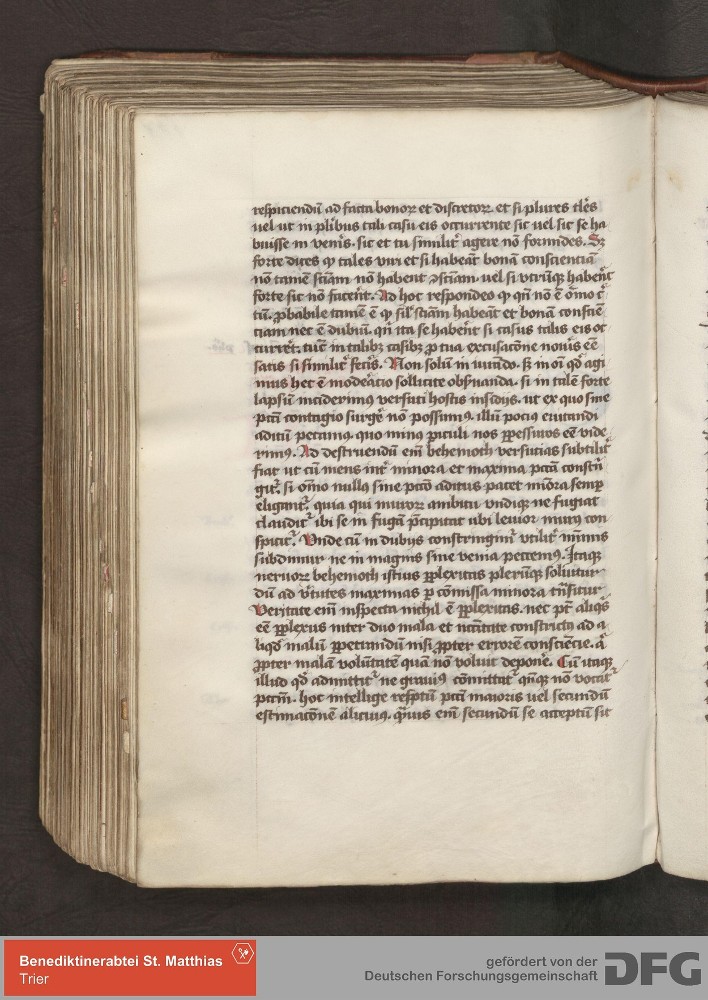 respiciendū ad facta bonoꝝ et discretoꝝ et si plures tłes
uel ut in pl̄ibus tali casu eis occurrente sic uel sic se ha
buisse inueneris. sic et tu similiť agere nō formides. Sꝫ
forte dices ꝙ tales viri et si habeāt bonā conscienciā
nō tamē sciām nō habent ꝯsciam. uel si vtrūqꝫ habeñt
forte sic nō facerēt. Ad hoc respondeo ꝙ qñ nō ē
tū. probabile tamē ē ꝙ sil̓ sciām habeāt et bonā conscīē
ciam nec ē dubiū. qn̄ ita se haberēt si casus talis eis oc
curret. tūc in talibꝫ casibꝫ ꝓ tua excusacōne
satis si similiť fecis. Non solū in uitādo. sꝫ in oī qd̓ agi
mus hec ē modeācio sollicite obẛuanda. si in talē forte
lapsū inciderimꝰ versuti hostis insidijs. ut ex quo sine
pccī contagio surgē nō possumꝰ. illū pocius euitandi
aditū petamꝰ quo minꝰ ꝑiculi nos ꝑpessuros eē vide
rimꝰ. Ad destruendū em̄ behemoth versucias subtiliť
fiat ut cū mens int̓ minora et maxima pccā constri̇
gitᷣ. si om̄io nullꝰ sine pccō aditus patet mīora semꝑ
eligantᷣ. quia qui muroꝝ ambitu vndiqꝫ ne fugiat
clauditᷣ ibi se in fugā p̄cipitat ubi leuior murꝰ con
spicitᷣ. Vnde cū in dubijs constringimᷣ vtiliť minimis
subdimur ne in magnis sine venia peccemꝰ. Itaqꝫ
neruoꝝ behemoth istius ꝑplexitas plerūqꝫ soluitur
dū ad v̓tutes maximas ꝑ cōmissa minora trāsitur
Veritate em̄ inspecta nichil ē ꝑplexitas. nec pt̄ aliqͥs
eē ꝑplexus inter duo mala et ncc̄itate constrictꝰ ad a
liqd̓ malū ꝑpetrandū nisi ꝓpter errorē consciēcie. aͥ
ꝓpter malā volūtatē quā nō voluit deponē. Cū itaqꝫ
illud qd̓ admittitᷣ ne grauiꝰ cōmittatᷣ qn̄qꝫ nō vocatᷣ
pccm̄. hoc intellige respc̄tu pccī maioris vel secundū
estimacōnē alicuiꝰ. qͣmuis em̄ secundū se acceptū sit
Benediktinerabtei St. Matthias
Trier
gefördert von der
Deutschen Forschungsgemeinschaft
DFG